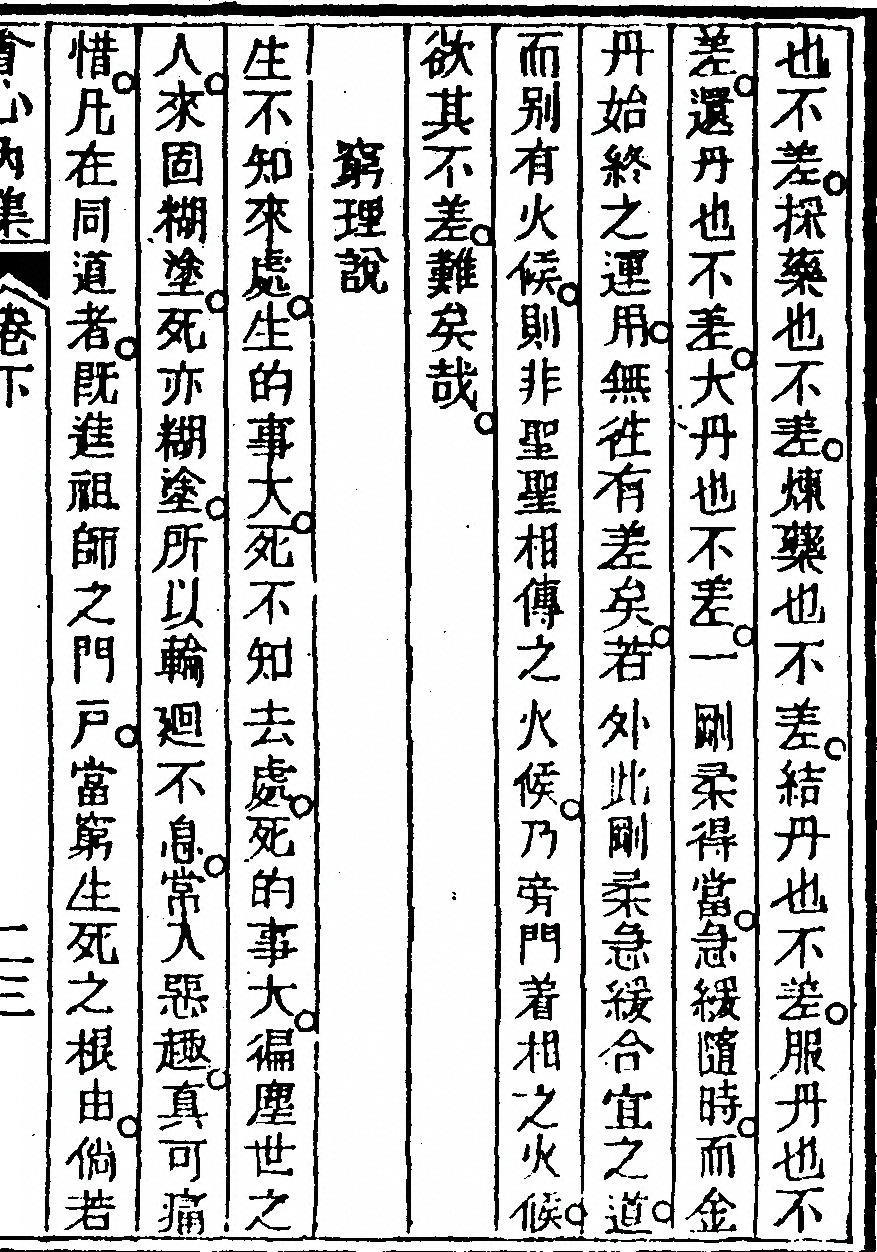 也不差。採藥也不差。煉藥也不差。結丹也不差。服丹也不
差。還丹也不差。大丹也不差。一剛柔得當。急緩隨時。而金
丹始終之運用。無徃有差矣。若外此剛柔急緩合宜之道。
而别有火候。則非聖聖相傳之火候。乃旁門着相之火候。
欲其不差。難矣哉。
窮理說
生不知來處。生的事大。死不知去處。死的事大。徧塵世之
人。來固糊塗。死亦糊塗。所以輪廻不息。常人惡趣。真可痛
惜。凡在同道者。旣進祖師之門戸。當窮生死之根由。倘若
會心內集 卷下 二三